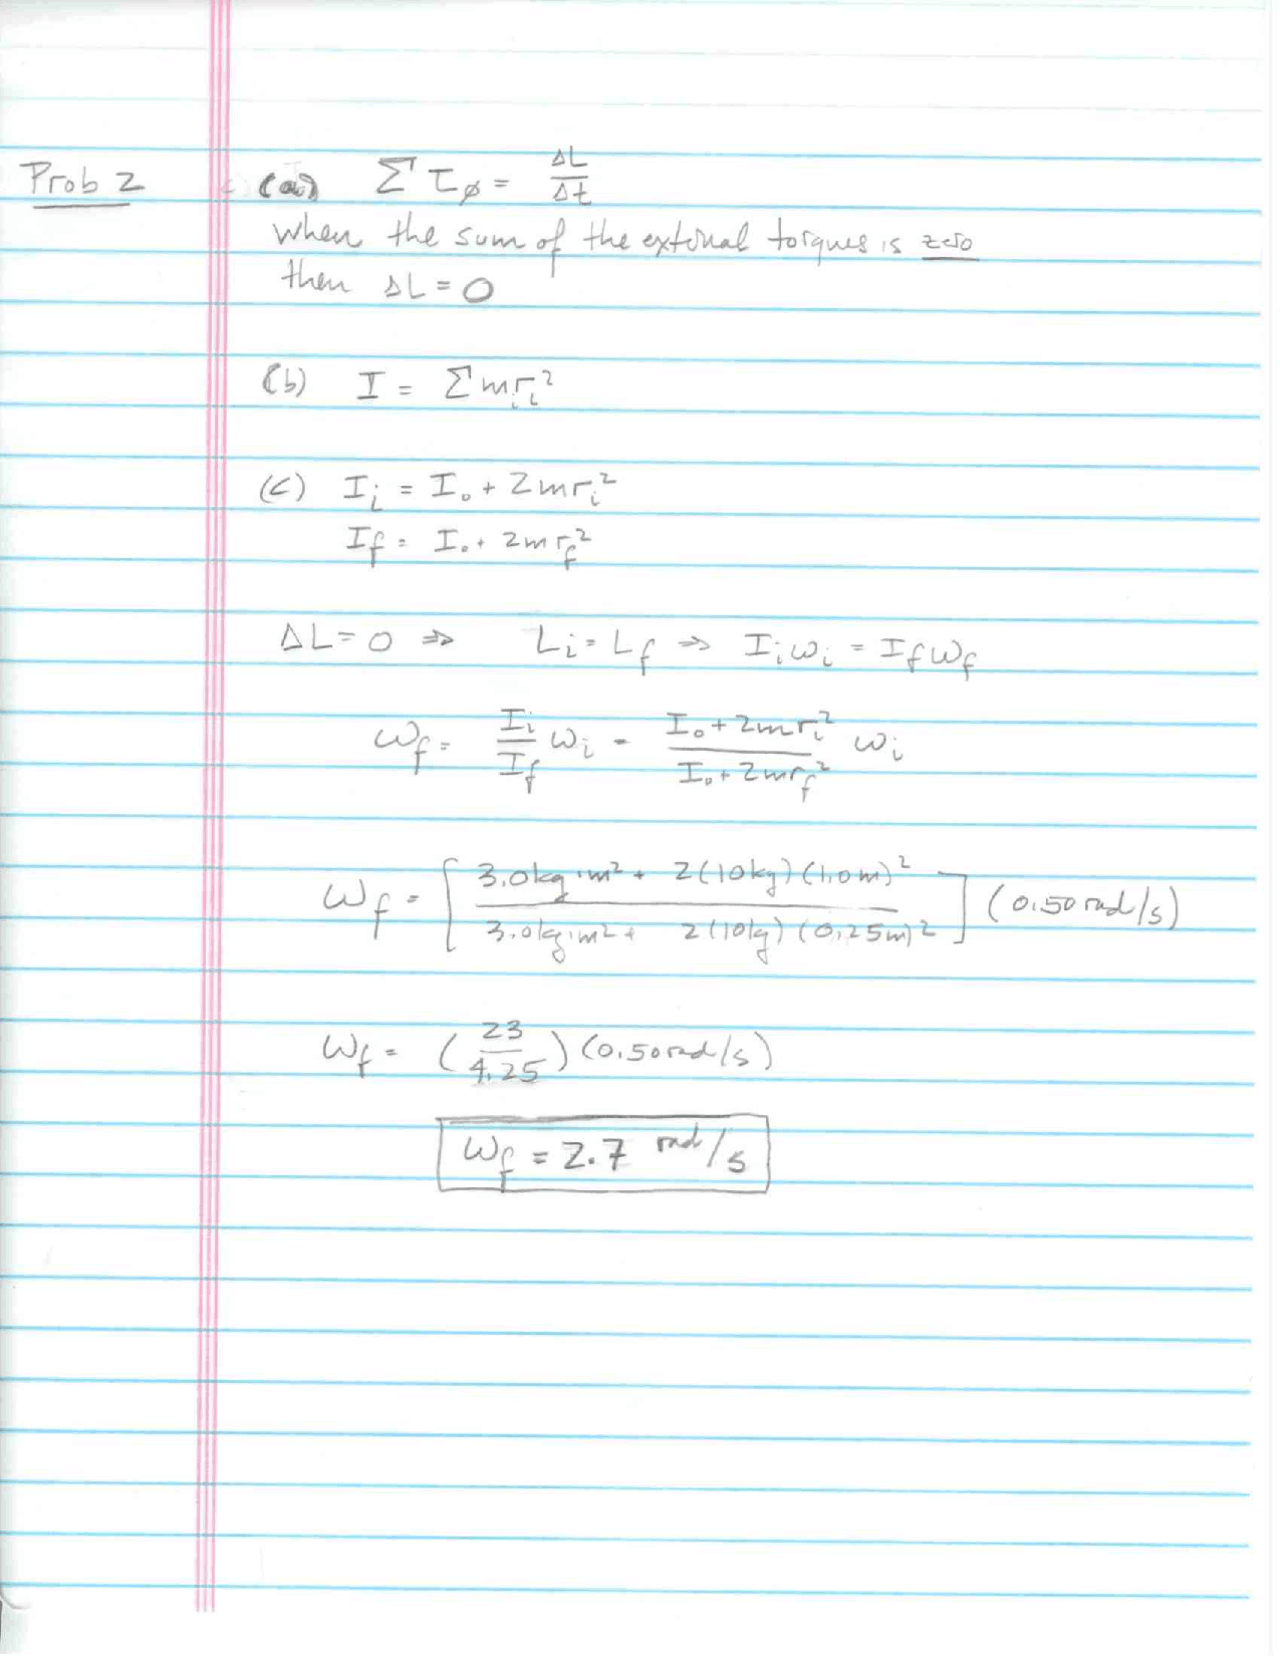 Prob 2
(a) Σ τ_φ = ΔL/Δt
when the sum of the external torques is zero
then ΔL = 0
(b) I = Σ m_i r_i²
(c) I_i = I_o + 2mr_i²
I_f = I_o + 2mr_f²
ΔL = 0 ⇒ L_i = L_f ⇒ I_i ω_i = I_f ω_f
ω_f = I_i/I_f ω_i = (I_o + 2mr_i²)/(I_o + 2mr_f²) ω_i
ω_f = [(3.0kg·m² + 2(10kg)(1.0m)²)/(3.0kg·m² + 2(10kg)(0.25m)²)] (0.50 rad/s)
ω_f = (23/4.25)(0.50rad/s)
ω_f = 2.7 rad/s